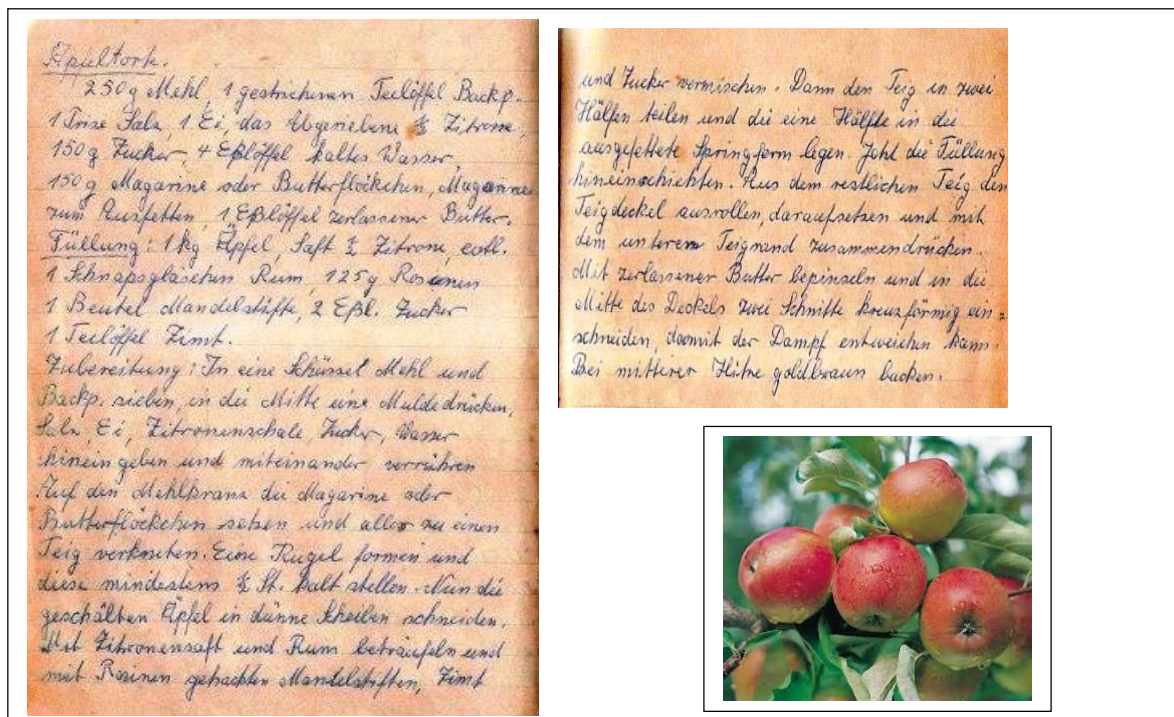 Apfeltorte.
250g Mehl, 1 gestrichenen Teelöffel Backp.
1 Prise Salz, 1 Ei, das Abgeriebene ½ Zitrone,
150g Zucker, 4 Eßlöffel kaltes Wasser,
150g Magarine oder Butterflöckchen, Magarine
zum Ausfetten, 1 Eßlöffel zerlassener Butter.
Füllung: 1 kg Äpfel, Saft ½ Zitrone, evtl.
1 Schnapsgläschen Rum, 125g Rosinen
1 Beutel Mandelstifte, 2 Eßl. Zucker
1 Teelöffel Zimt.
Zubereitung: In eine Schüssel Mehl und
Backp. sieben, in die Mitte eine Mulde drücken,
Salz, Ei, Zitronenschale, Zucker, Wasser
hineingeben und miteinander verrühren
Auf den Mehlkranz die Magarine oder
Butterflöckchen setzen und alles zu einen
Teig verkneten. Eine Kugel formen und
diese mindestens ½ St. kalt stellen. Nun die
geschälten Äpfel in dünne Scheiben schneiden.
Mit Zitronensaft und Rum beträufeln und
mit Rosinen gehackten Mandelstiften, Zimt
und Zucker vermischen. Dann den Teig in zwei
Hälften teilen und die eine Hälfte in die
ausgefettete Springform legen. Jetzt die Füllung
hineinschichten. Aus dem restlichen Teig den
Teigdeckel ausrollen, daraufsetzen und mit
dem unteren Teigrand zusammendrücken.
Mit zerlassener Butter bepinseln und in die
Mitte des Deckels zwei Schnitte kreuzförmig ein=
schneiden, damit der Dampf entweichen kann.
Bei mitterer Hitze goldbraun backen.